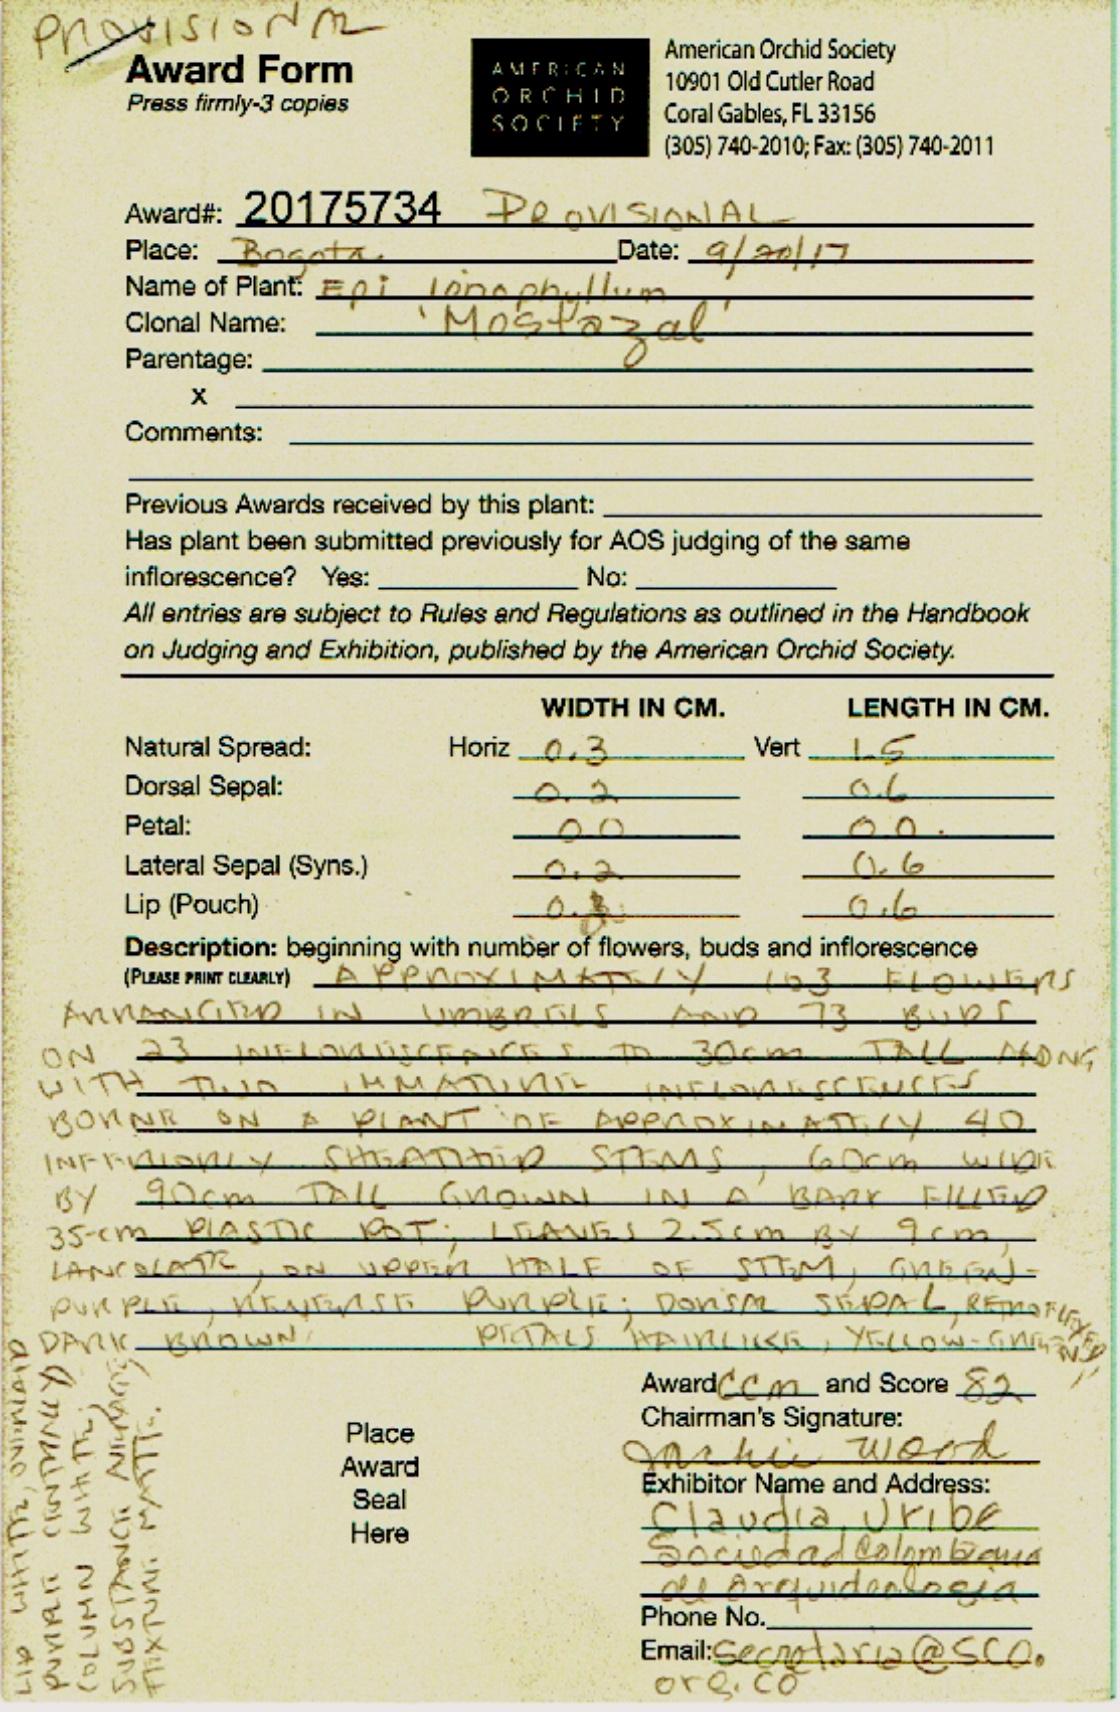 PROVISIONAL
Award Form
Press firmly-3 copies
AMERICAN
ORCHID
SOCIETY
American Orchid Society
10901 Old Cutler Road
Coral Gables, FL 33156
(305) 740-2010; Fax: (305) 740-2011
Award#: 20175734 PROVISIONAL
Place: Bogota Date: 9/20/17
Name of Plant: Epi ionophyllum
Clonal Name: 'Mostazal'
Parentage:
x
Comments:
Previous Awards received by this plant:
Has plant been submitted previously for AOS judging of the same
inflorescence? Yes: No:
All entries are subject to Rules and Regulations as outlined in the Handbook
on Judging and Exhibition, published by the American Orchid Society.
WIDTH IN CM. LENGTH IN CM.
Natural Spread: Horiz 0.3 Vert 1.5
Dorsal Sepal: 0.2 0.6
Petal: 0.0 0.0.
Lateral Sepal (Syns.) 0.2 0.6
Lip (Pouch) 0.3 0.6
Description: beginning with number of flowers, buds and inflorescence
(PLEASE PRINT CLEARLY) APPROXIMATELY 103 FLOWERS
ARRANGED IN UMBRELS AND 73 BUDS
ON 23 INFLORESCENCES TO 30cm TALL ALONG
WITH TWO IMMATURE INFLORESCENCES
BORNE ON A PLANT OF APPROXIMATELY 40
INFERIORLY SHEATHED STEMS, 60cm WIDE
BY 90cm TALL GROWN IN A BARK FILLED
35-cm PLASTIC POT; LEAVES 2.5cm BY 9cm,
LANCOLATE, ON UPPER HALF OF STEM, GREEN-
PURPLE, REVERSE PURPLE; DORSAL SEPAL, RETROFLEXED
DARK BROWN; PETALS HAIRLIKE, YELLOW-GREEN;
LIP WHITE,
PURPLE CENTRALLY
COLUMN WHITE;
SUBSTANCE AVERAGE;
TEXTURE MATTE.
Award CCM and Score 82
Chairman's Signature:
Jackie Wood
Place
Award
Seal
Here
Exhibitor Name and Address:
Claudia Uribe
Sociedad Colombiana
de Orquideologia
Phone No.
Email: secretaria@sco.
org.co